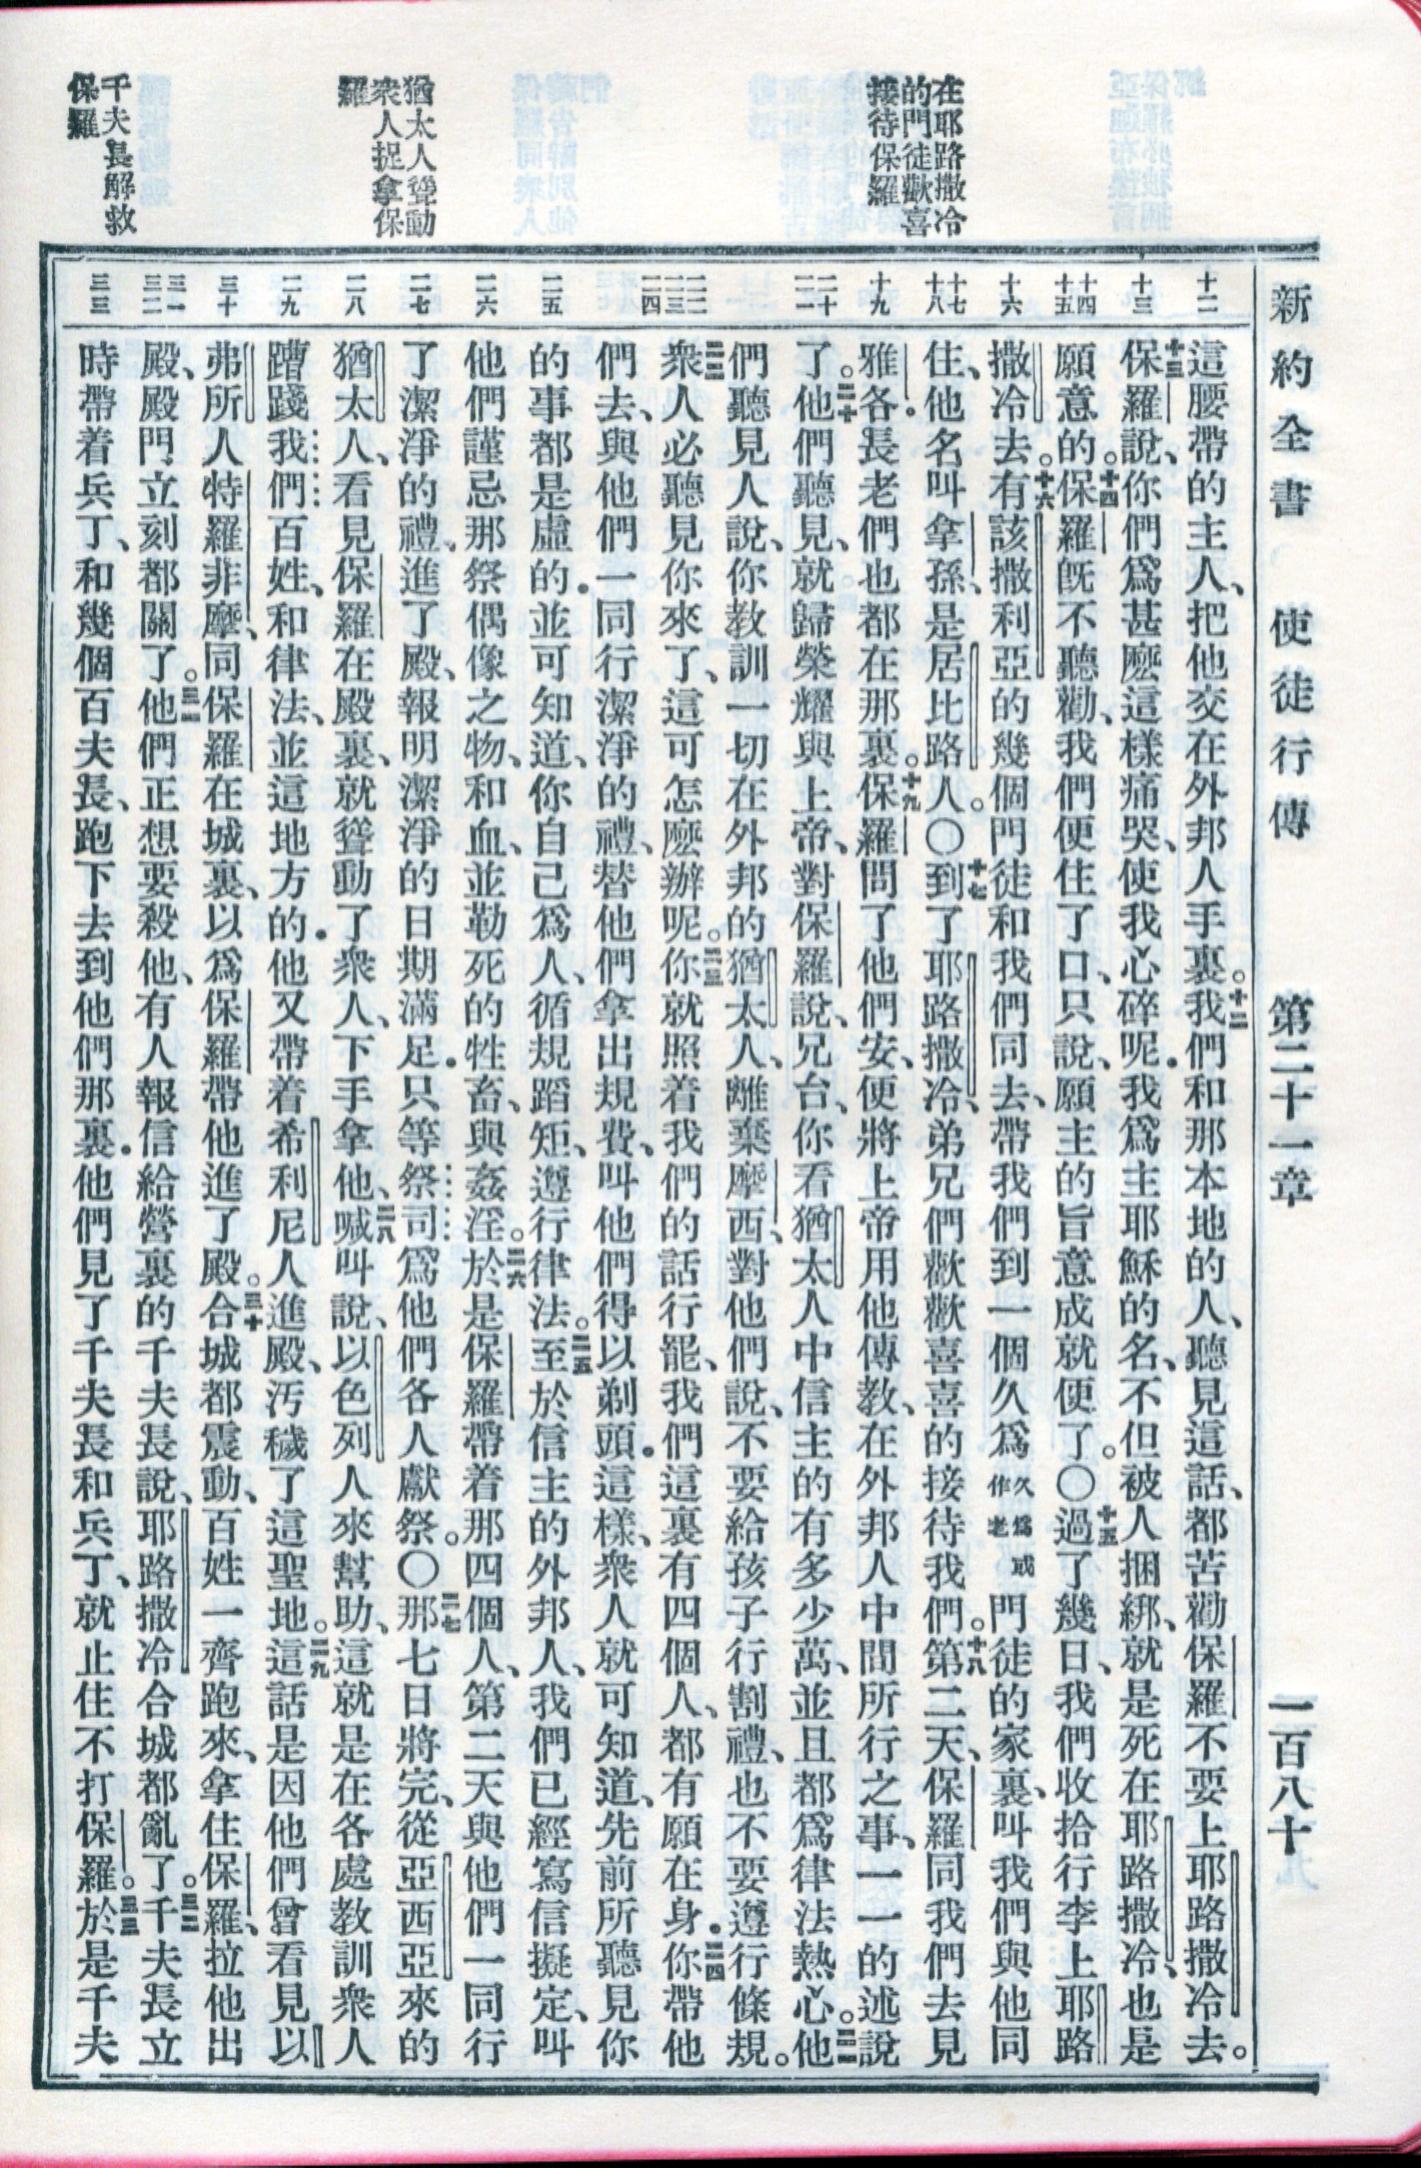 新約全書 使徒行傳 第二十一章 一百八十
在耶路撒冷
的門徒歡喜
接待保羅
猶太人聳動
衆人捉拿保
羅
千夫長解救
保羅
十二
十三
十四
十五
十六
十七
十八
十九
二十
二一
二二
二三
二四
二五
二六
二七
二八
二九
三十
三一
三二
三三
這腰帶的主人、把他交在外邦人手裏。十二我們和那本地的人、聽見這話、都苦勸保羅不要上耶路撒冷去。
十三保羅說、你們爲甚麼這樣痛哭、使我心碎呢．我爲主耶穌的名、不但被人捆綁、就是死在耶路撒冷、也是
願意的。十四保羅旣不聽勸、我們便住了口、只說、願主的旨意成就便了。〇十五過了幾日、我們收拾行李上耶路
撒冷去。十六有該撒利亞的幾個門徒和我們同去、帶我們到一個久爲久爲或作老門徒的家裏、叫我們與他同
住、他名叫拿孫、是居比路人。〇十七到了耶路撒冷、弟兄們歡歡喜喜的接待我們。十八第二天、保羅同我們去見
雅各．長老們也都在那裏。十九保羅問了他們安、便將上帝用他傳教、在外邦人中間所行之事、一一的述說
了。二十他們聽見、就歸榮耀與上帝、對保羅說、兄台、你看猶太人中信主的有多少萬、並且都爲律法熱心。二一他
們聽見人說、你教訓一切在外邦的猶太人、離棄摩西、對他們說、不要給孩子行割禮、也不要遵行條規。
二二衆人必聽見你來了、這可怎麼辦呢。二三你就照着我們的話行罷、我們這裏有四個人、都有願在身．二四你帶他
們去、與他們一同行潔淨的禮、替他們拿出規費、叫他們得以剃頭．這樣、衆人就可知道、先前所聽見你
的事都是虛的．並可知道、你自己爲人、循規蹈矩、遵行律法。二五至於信主的外邦人、我們已經寫信擬定、叫
他們謹忌那祭偶像之物、和血、並勒死的牲畜、與姦淫。二六於是保羅帶着那四個人、第二天與他們一同行
了潔淨的禮、進了殿、報明潔淨的日期滿足．只等祭司爲他們各人獻祭。〇二七那七日將完、從亞西亞來的
猶太人、看見保羅在殿裏、就聳動了衆人、下手拿他、二八喊叫說、以色列人來幫助、這就是在各處教訓衆人
蹧踐我們百姓、和律法、並這地方的．他又帶着希利尼人進殿、汚穢了這聖地。二九這話是因他們曾看見以
弗所人特羅非摩、同保羅在城裏、以爲保羅帶他進了殿。三十合城都震動、百姓一齊跑來、拿住保羅、拉他出
殿、殿門立刻都關了。三一他們正想要殺他、有人報信給營裏的千夫長說、耶路撒冷合城都亂了。三二千夫長立
時帶着兵丁、和幾個百夫長、跑下去到他們那裏．他們見了千夫長和兵丁、就止住不打保羅。三三於是千夫